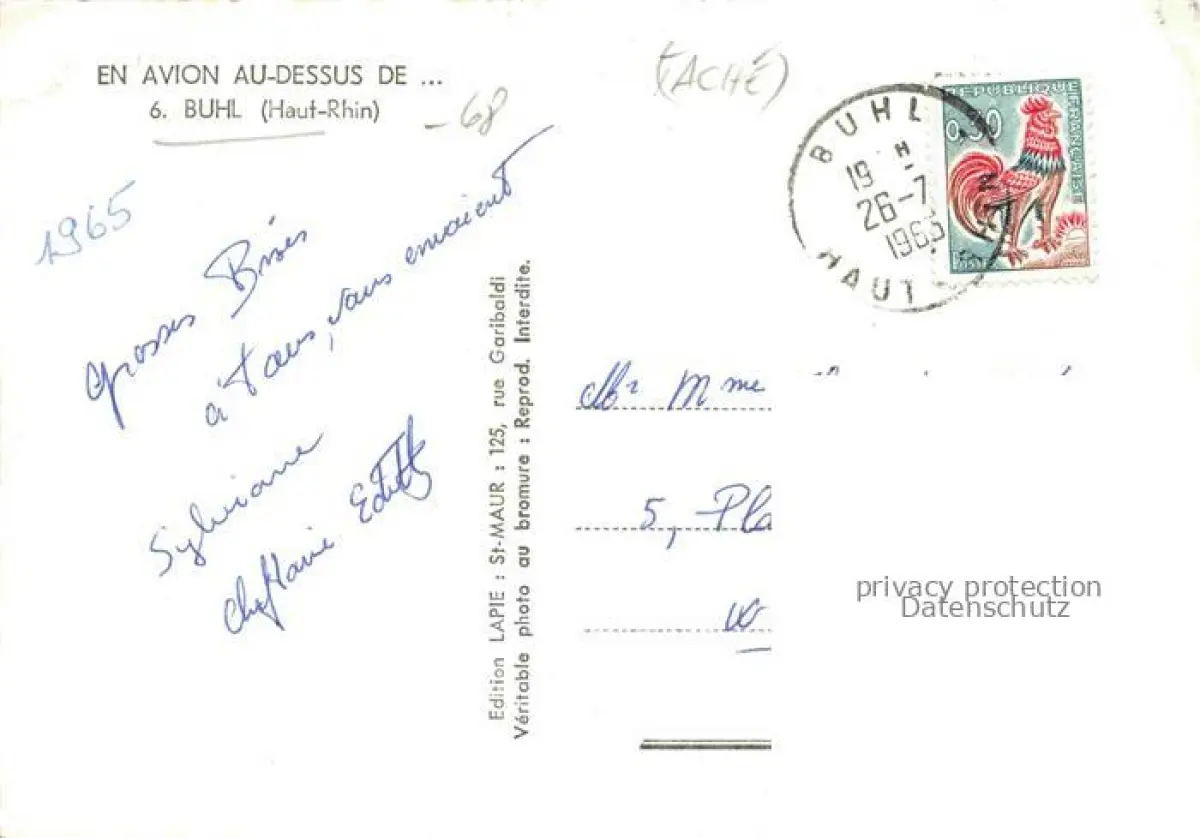 EN AVION AU-DESSUS DE ...
6. BUHL (Haut-Rhin)
-68
(TACHÉ)
1965
Grosses Bises
à Tous, vous envoient
Sylviane
Edith
Edition LAPIE : St-MAUR : 125, rue Garibaldi
Véritable photo au bromure : Reprod. Interdite.
BUHL
19 H
26-7
1965
HAUT-
RÉPUBLIQUE FRANÇAISE
0,30
POSTES
Mr Mme
5, Pla
W
privacy protection
Datenschutz